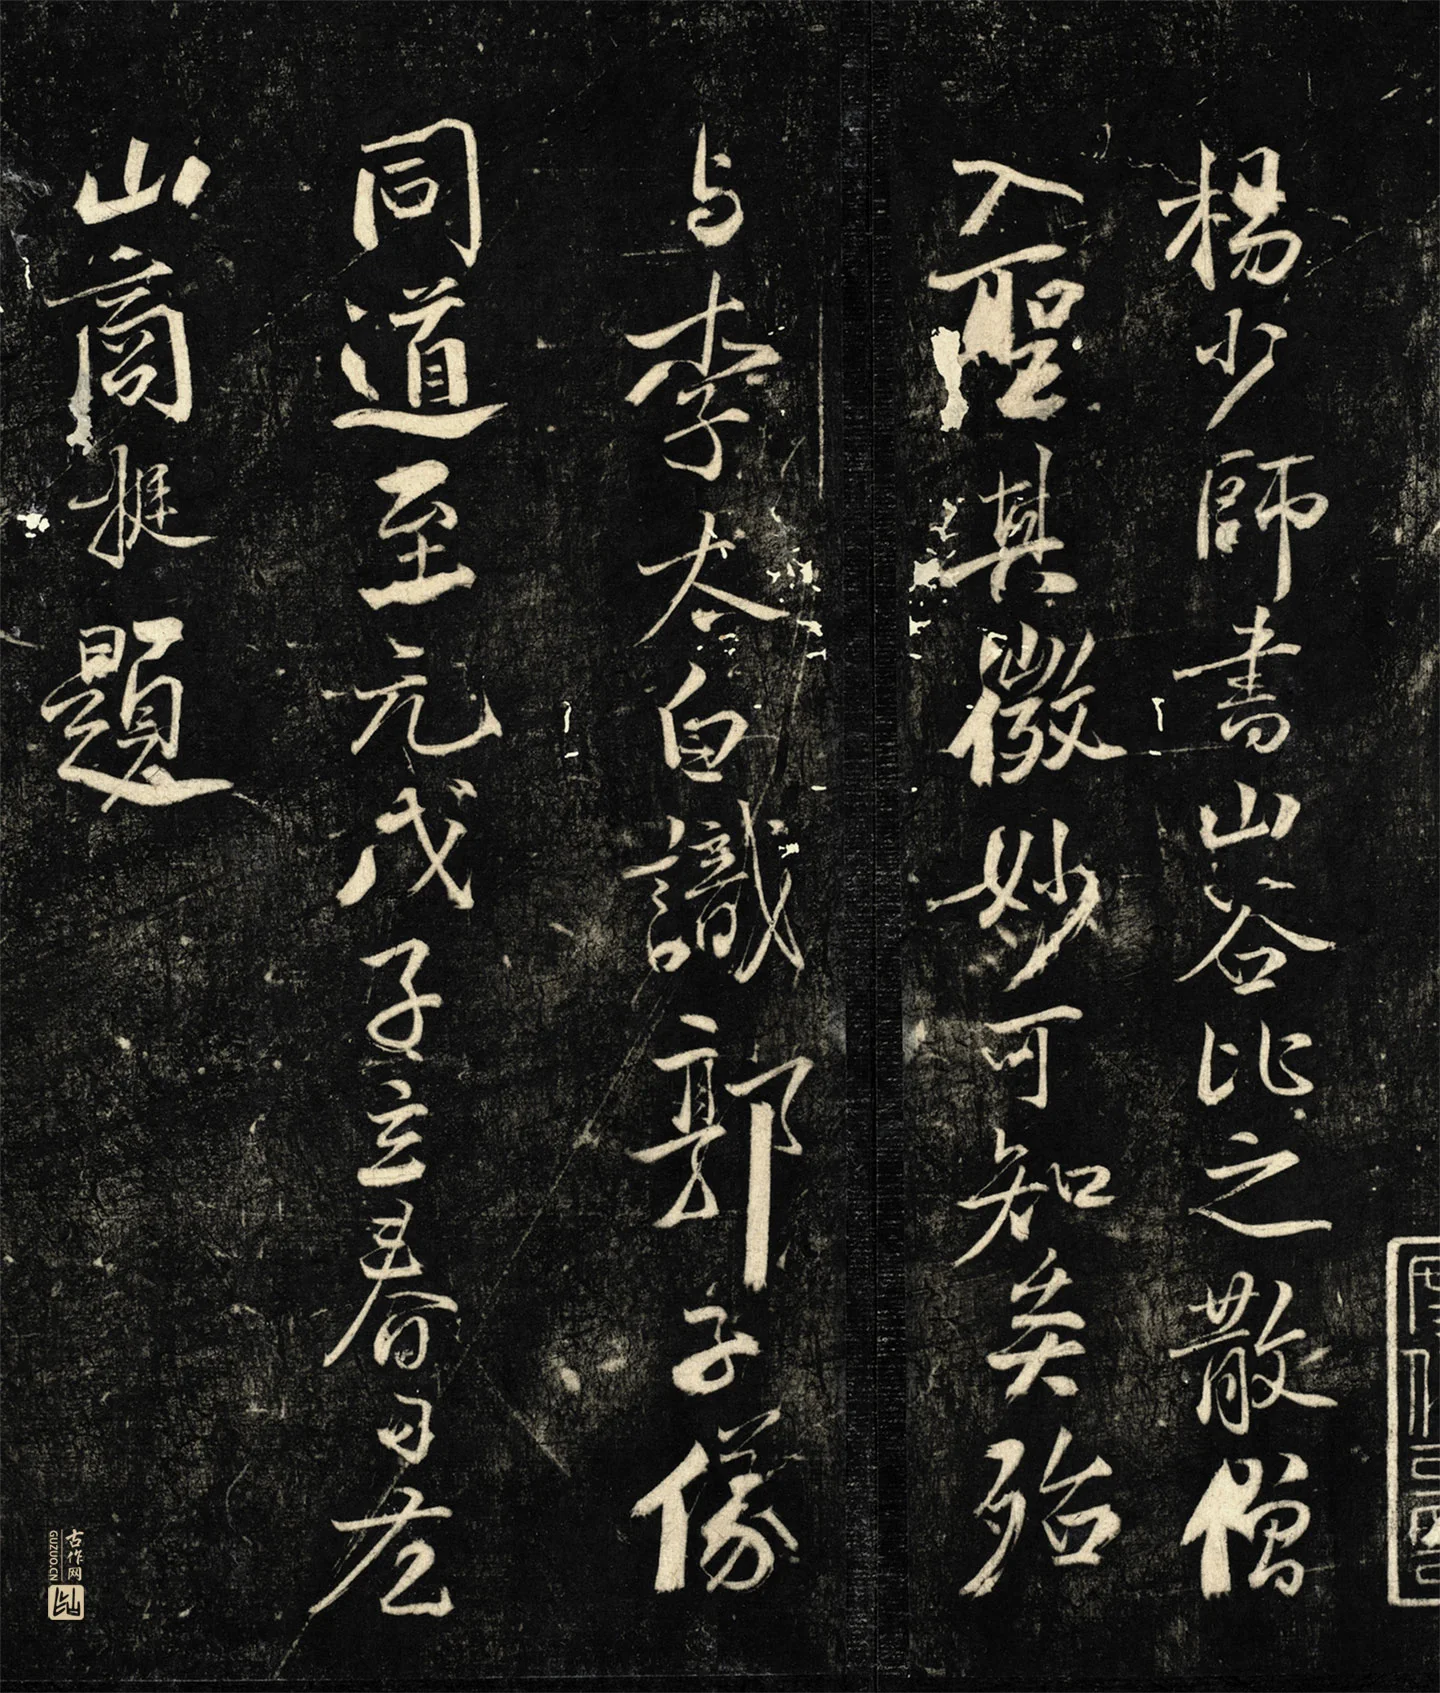 楊少師書山谷比之散僧
入聖其微妙可知矣殆
与李太白識郭子儀
同道至元戊子立春日左
山商挺題
古作网
GUZUO.CN